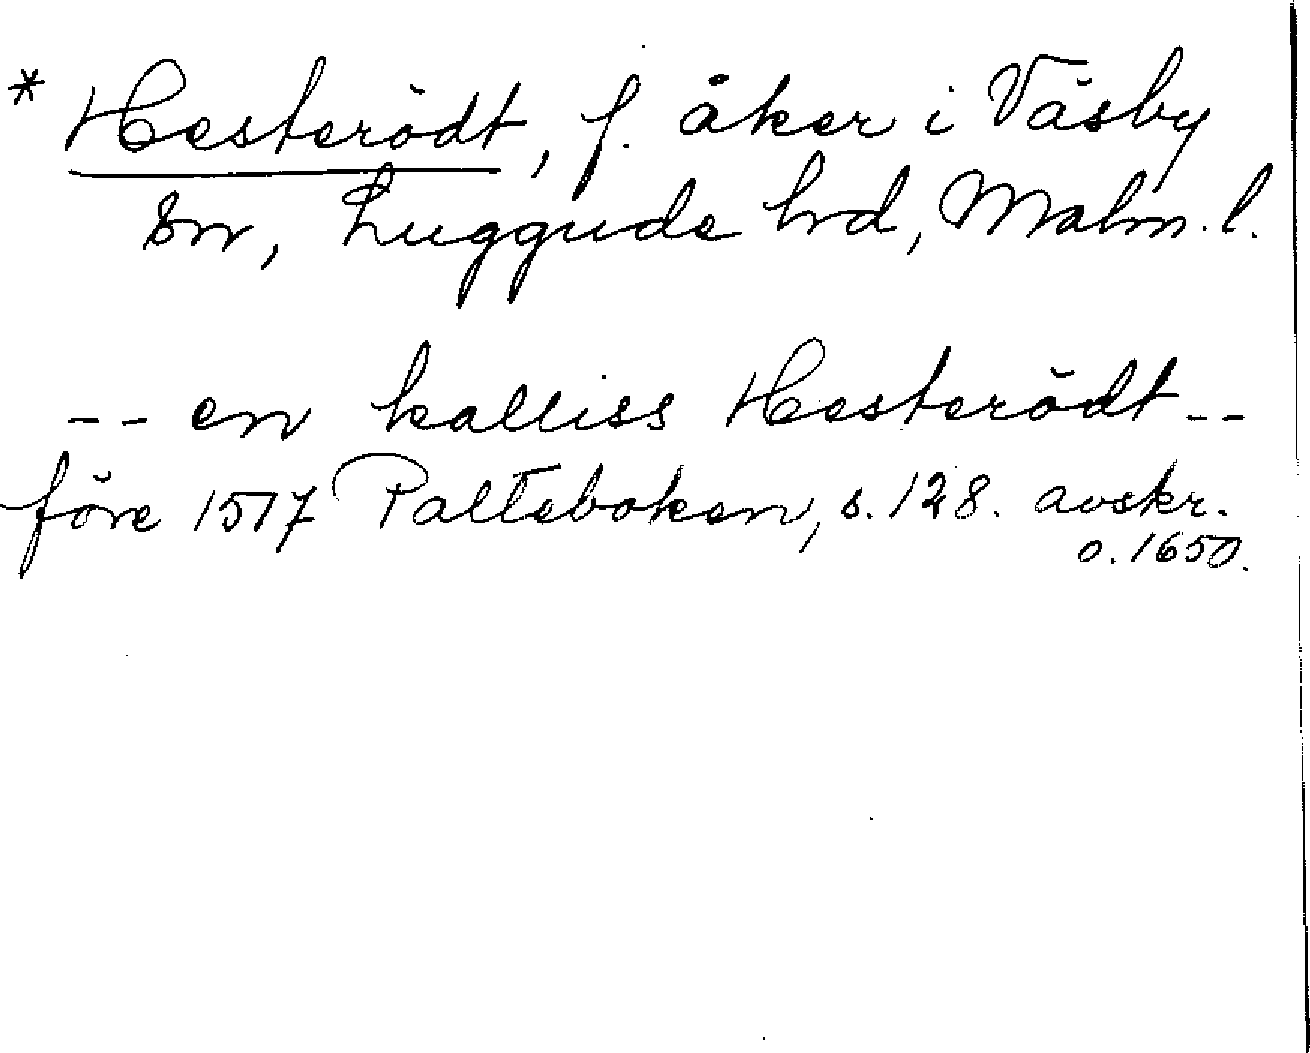 * Hesterödt, f. åker i Väsby
sn, Luggude hrd, Malm. l.
-- en kalliss Hesterödt --
före 1517 Palteboken, s. 128. avskr.
o. 1650.